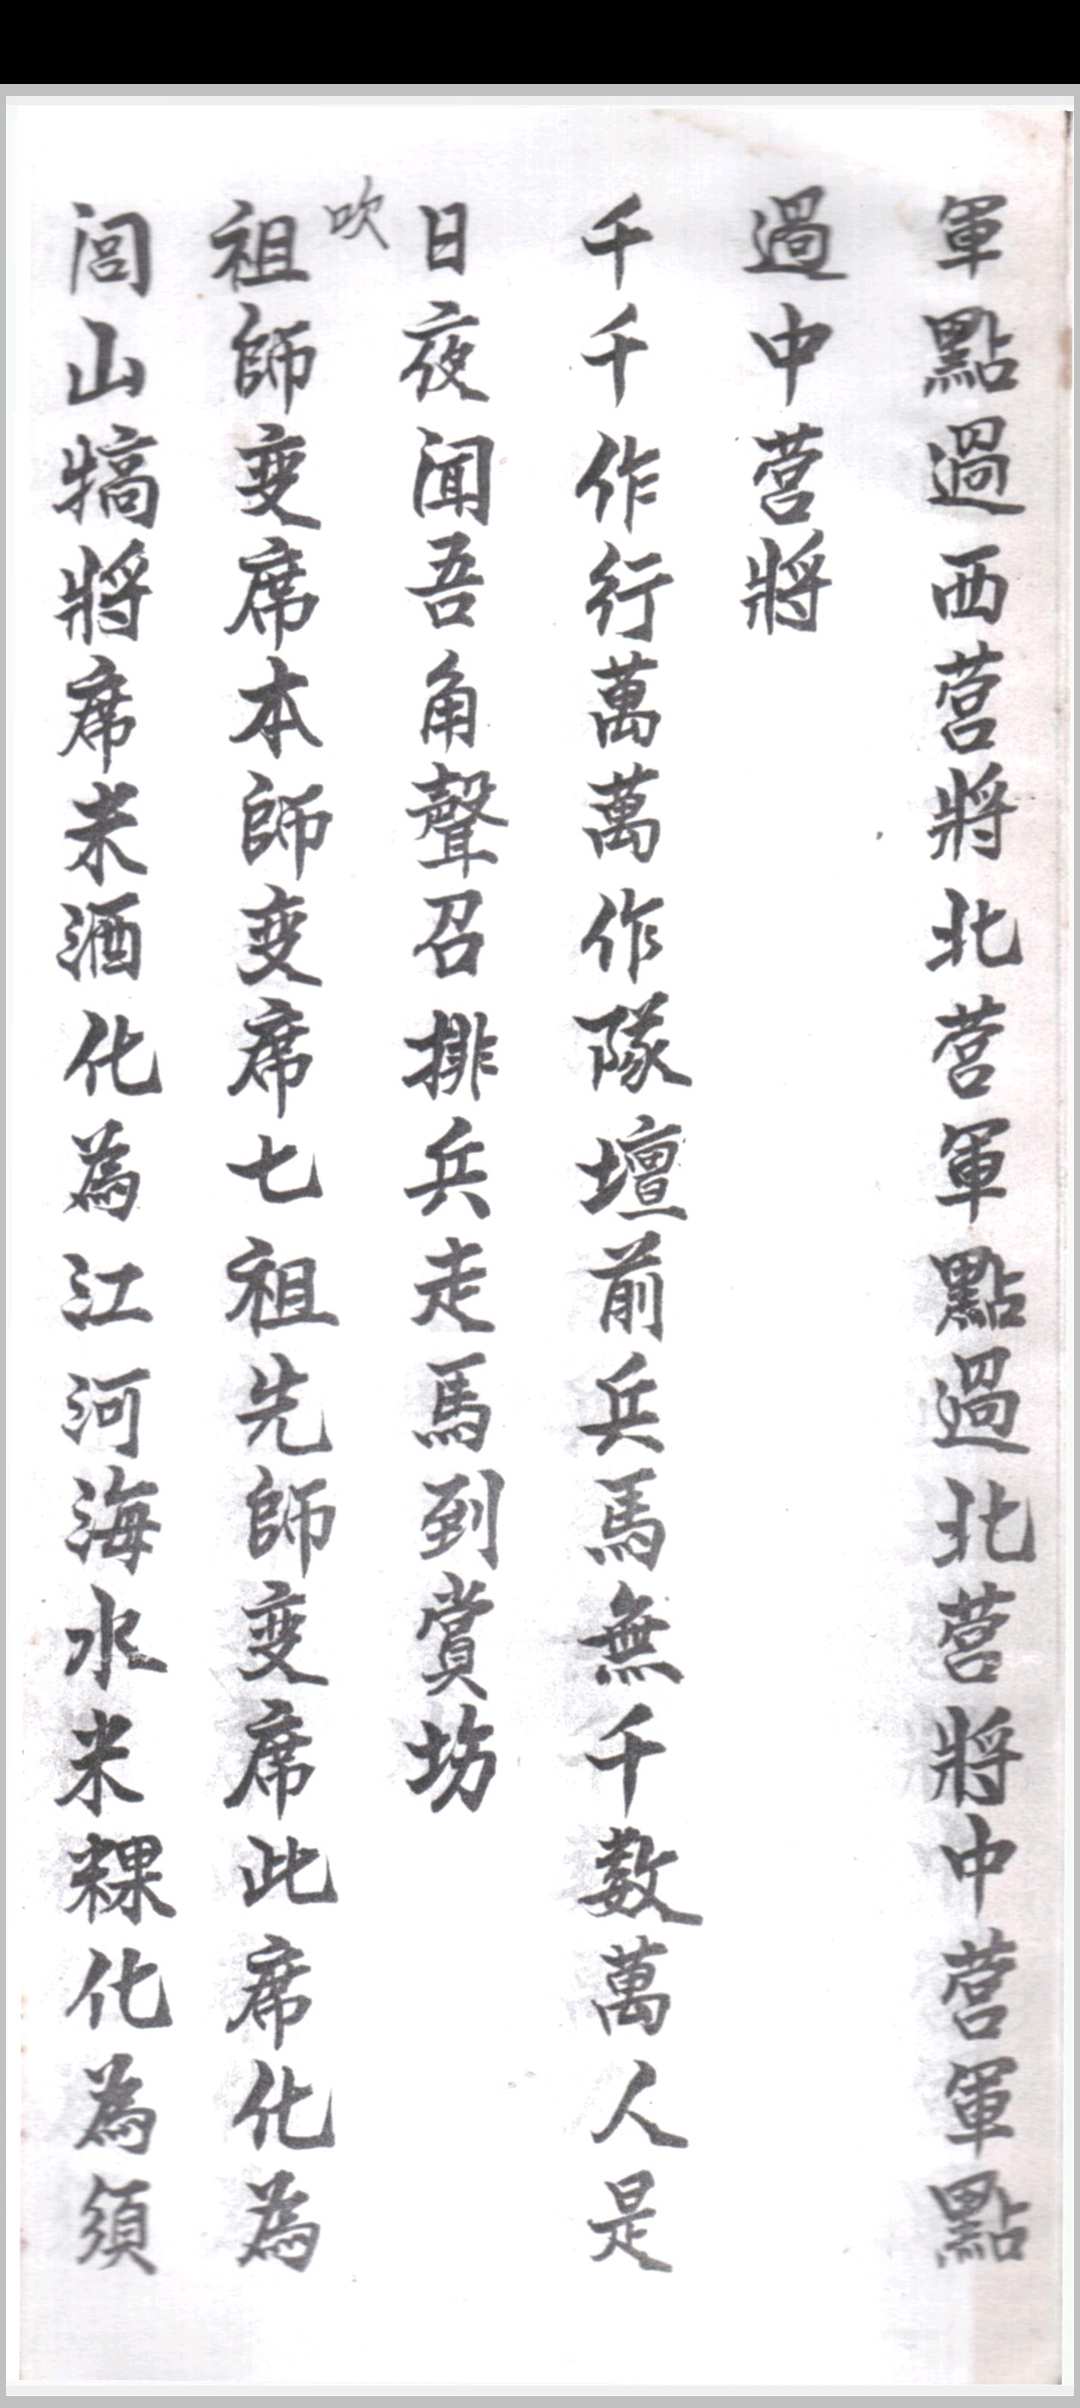 軍點過西营將北营軍點過北营將中营軍點
過中营將
千千作行萬萬作隊壇前兵馬無千数萬人是
日夜闻吾角聲召排兵走馬到賞坊
吹
祖師变席本師变席七祖先師变席此席化為
闾山犒將席米酒化為江河海水米粿化為須